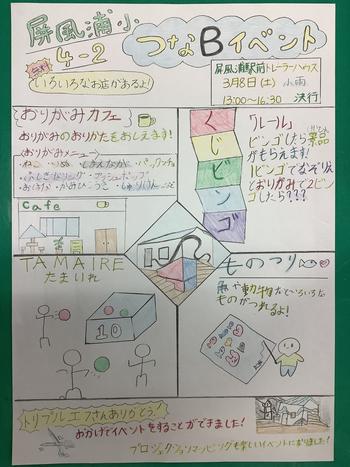 屏風浦小
4-2
つなBイベント
無料
いろいろなお店があるよ!
屏風浦駅前トレーラーハウス
3月8日(土) 小雨
13:00〜16:30 決行
おりがみカフェ
おりがみのおりかたをおしえます!
〈おりがみメニュー〉
ねこ
いぬ
Cafe
くじビンゴ
「ルール」
ビンゴしたら景品
がもらえます!
1ビンゴでなぞりえ
とおりがみで2ビン
ゴしたら???
TAMAIRE
たまいれ
10
ものつり
魚や動物などいろいろな
ものがつれるよ!
トリプルエフさんありがとう!
おかげでイベントをすることができました!
プロジェクションマッピングも楽しいイベントになりました!